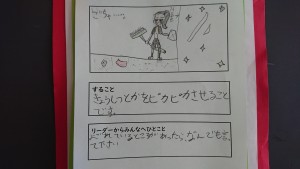 すること
きょうしつとかをピカピカさせること
です。
リーダーからみんなへひとこと
よごれているところがあったら、なんでも言っ
て下さい